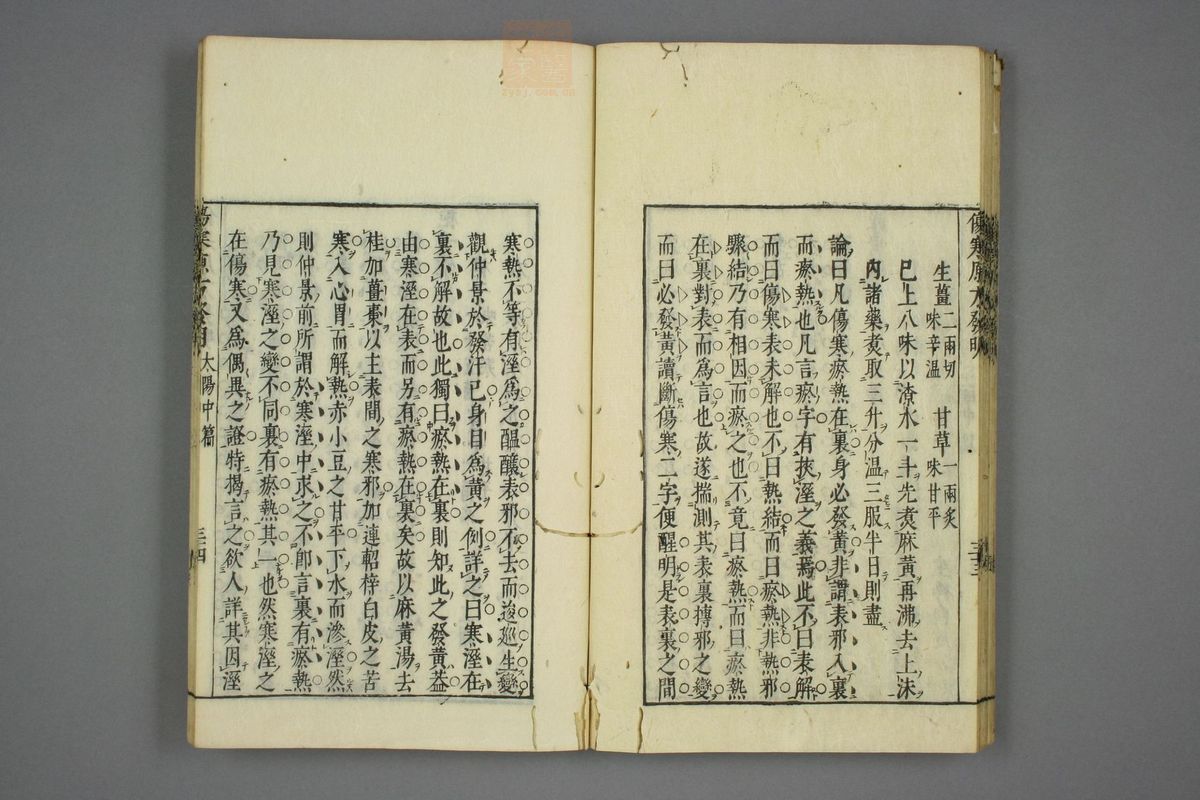 傷寒原方發明
生薑二兩切味辛溫 甘草一兩炙味甘平
已上八味以潦水一斗先煑麻黃再沸去上沫
內諸藥煑取三升分溫三服半日則盡
論曰凡傷寒瘀熱在裏身必發黃非謂表邪入裏
而瘀熱也凡言瘀字有挾溼之義焉此不曰表解
而曰傷寒表未解也不曰熱結而曰瘀熱非熱邪
驟結乃有相因而瘀之也不竟曰瘀熱而曰瘀熱
在裏對表而爲言也故遂揣測其表裏摶邪之變
而曰必發黃讀斷傷寒二字便醒明是表裏之間
寒熱不等有溼爲之醞釀表邪不去而逡巡生變
觀仲景於發汗已身目爲黃之例詳之曰寒溼在
裏不解故也此獨曰瘀熱在裏則知此之發黃葢
由寒溼在表而另有瘀熱在裏矣故以麻黃湯去
桂加薑棗以主表間之寒邪加連軺梓白皮之苦
寒入心胃而解熱赤小豆之甘平下水而滲溼然
則仲景前所謂於寒溼中求之不卽言裏有瘀熱
乃見寒溼之變不同裏有瘀熱其一也然寒溼之
在傷寒又爲偶異之證特揭言之欲人詳其因溼
太陽中篇
三四